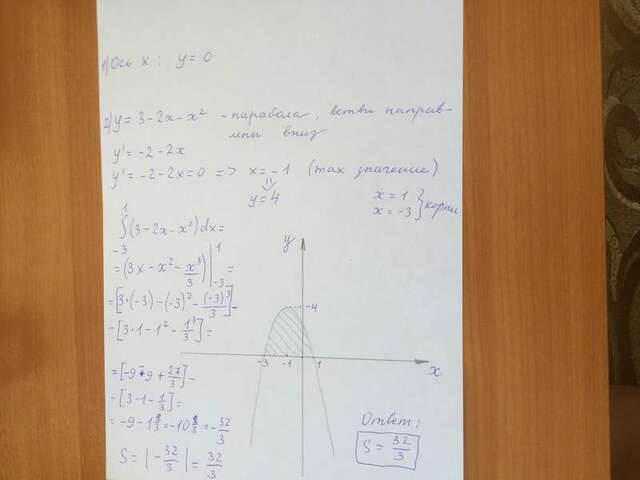 1) Ось x: y = 0
2) y = 3 - 2x - x² - парабола, ветви направ-
лены вниз
y' = -2 - 2x
y' = -2 - 2x = 0 => x = -1 (max значение)
⇓
y = 4
x = 1
x = -3 } корни
1
∫(3 - 2x - x²)dx =
-3
= (3x - x² - x³/3) |¹₋₃ =
= [3·(-3) - (-3)² - (-3)³/3] -
- [3·1 - 1² - 1³/3] =
= [-9 - 9 + 27/3] -
- [3 - 1 - 1/3] =
= -9 - 1 2/3 = -10 2/3 = -32/3
S = |-32/3| = 32/3
y
4
-3 -1 1
x
Ответ:
S = 32/3